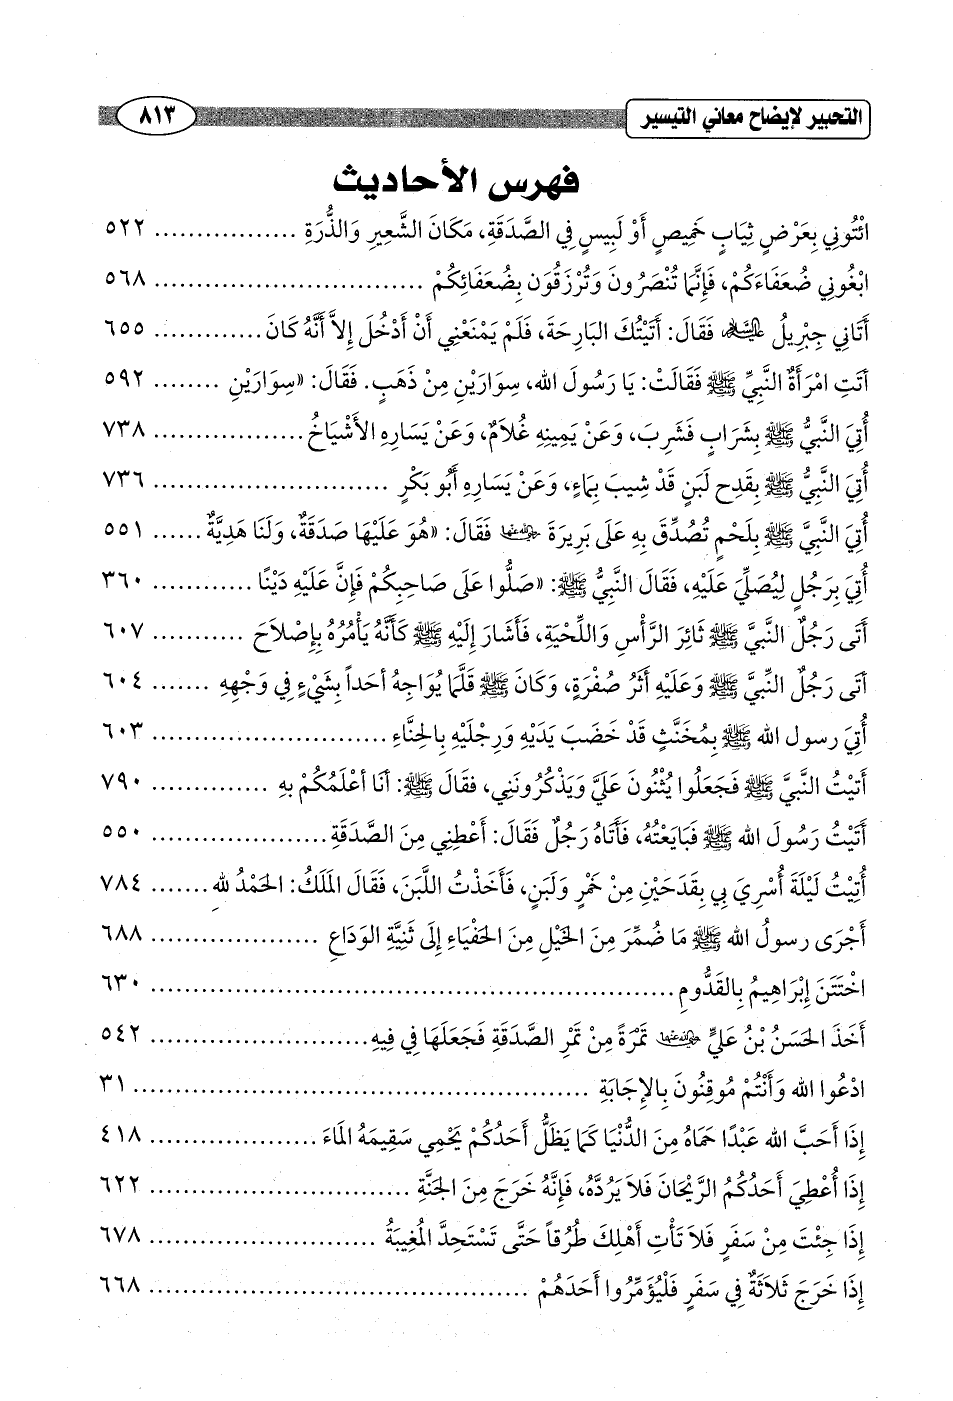 التحبير لإيضاح معاني التيسير ٨١٣
فهرس الأحاديث
ائْتُونِي بِعَرْضٍ ثِيَابٍ خَمِيصٍ أَوْ لَبِيسٍ فِي الصَّدَقَةِ، مَكَانَ الشَّعِيرِ وَالذُّرَةِ ................ ٥٢٢
ابْغُونِي ضُعَفَاءَكُمْ، فَإِنَّمَا تُنْصَرُونَ وَتُرْزَقُون بِضُعَفَائِكُمْ ............................... ٥٦٨
أَتَانِي جِبْرِيلُ عليه السلام فَقَالَ: أَتَيْتُكَ البَارِحَةَ، فَلَمْ يَمْنَعْنِي أَنْ أَدْخُلَ إِلاَّ أَنَّهُ كَانَ............ ٦٥٥
أَتَتِ امْرَأَةٌ النَّبِيِّ ﷺ فَقَالَتْ: يَا رَسُولَ الله، سِوَارَيْنِ مِنْ ذَهَبٍ. فَقَالَ: «سِوَارَيْنِ ........ ٥٩٢
أُتِيَ النَّبِيُّ ﷺ بِشَرَابٍ فَشَرِبَ، وَعَنْ يَمِينِهِ غُلَامٌ، وَعَنْ يَسَارِهِ الأَشْيَاخُ................. ٧٣٨
أُتِيَ النَّبِيُّ ﷺ بِقَدِحِ لَبَنٍ قَدْ شِيبَ بِمَاءٍ، وَعَنْ يَسَارِهِ أَبُو بَكْرٍ ........................... ٧٣٦
أُتِيَ النَّبِيَّ ﷺ بِلَحْمٍ تُصُدِّقَ بِهِ عَلَى بَرِيرَةَ رضي الله عنها فَقَالَ: «هُوَ عَلَيْهَا صَدَقَةٌ، وَلَنَا هَدِيَّةٌ ...... ٥٥١
أُتِيَ بِرَجُلٍ لِيُصَلِّيَ عَلَيْهِ، فَقَالَ النَّبِيُّ ﷺ: «صَلُّوا عَلَى صَاحِبِكُمْ فَإِنَّ عَلَيْهِ دَيْنًا ............ ٣٦٠
أَتَى رَجُلٌ النَّبِيَّ ﷺ ثَائِرَ الرَّأْسِ وَاللِّحْيَةِ، فَأَشَارَ إِلَيْهِ ﷺ كَأَنَّهُ يَأْمُرُهُ بِإِصْلَاحَ ........... ٦٠٧
أَتَى رَجُلٌ النَّبِيَّ ﷺ وَعَلَيْهِ أَثَرُ صُفْرَةٍ، وَكَانَ ﷺ قَلَّمَا يُوَاجِهُ أَحَداً بِشَيْءٍ فِي وَجْهِهِ ....... ٦٠٤
أُتِيَ رسول الله ﷺ بِمُخَنَّثٍ قَدْ خَضَبَ يَدَيْهِ وَرِجْلَيْهِ بِالحِنَّاءِ............................ ٦٠٣
أَتَيْتُ النَّبِيَّ ﷺ فَجَعَلُوا يُثْنُونَ عَلَيَّ وَيَذْكُرُونَنِي، فقَالَ ﷺ: أَنَا أَعْلَمُكُمْ بِهِ .............. ٧٩٠
أَتَيْتُ رَسُولَ الله ﷺ فَبَايَعْتُهُ، فَأَتَاهُ رَجُلٌ فَقَالَ: أَعْطِنِي مِنَ الصَّدَقَةِ.................... ٥٥٠
أُتِيْتُ لَيْلَةَ أُسْرِيَ بِي بِقَدَحَيْنِ مِنْ خَمْرٍ وَلَبَنٍ، فَأَخَذْتُ اللَّبَنَ، فَقَالَ المَلَكُ: الحَمْدُ لله ....... ٧٨٤
أَجْرَى رسولُ الله ﷺ مَا ضُمِّرَ مِنَ الخَيْلِ مِنَ الحَفْيَاءِ إِلَى ثَنِيَّةِ الوَدَاعِ ................... ٦٨٨
اخْتَتَنَ إِبْرَاهِيمُ بِالقَدُّومِ............................................................ ٦٣٠
أَخَذَ الحَسَنُ بْنُ عَلِيٍّ رضي الله عنهما تَمْرَةً مِنْ تَمْرِ الصَّدَقَةِ فَجَعَلَهَا فِي فِيهِ......................... ٥٤٢
ادْعُوا الله وَأَنْتُمْ مُوقِنُونَ بِالإِجَابَةِ .................................................... ٣١
إِذَا أَحَبَّ الله عَبْدًا حَمَاهُ مِنَ الدُّنْيَا كَمَا يَظَلُّ أَحَدُكُمْ يَحْمِي سَقِيمَهُ المَاءَ ................... ٤١٨
إِذَا أُعْطِيَ أَحَدُكُمُ الرَّيْحَانَ فَلَا يَرُدَّهُ، فَإِنَّهُ خَرَجَ مِنَ الجَنَّةِ .............................. ٦٢٢
إِذَا جِئْتَ مِنْ سَفَرٍ فَلَا تَأْتِ أَهْلِكَ طُرُقاً حَتَّى تَسْتَحِدَّ المُغِيبَةُ .......................... ٦٧٨
إِذَا خَرَجَ ثَلَاثَةٌ فِي سَفَرٍ فَلْيُؤَمِّرُوا أَحَدَهُمْ ........................................... ٦٦٨